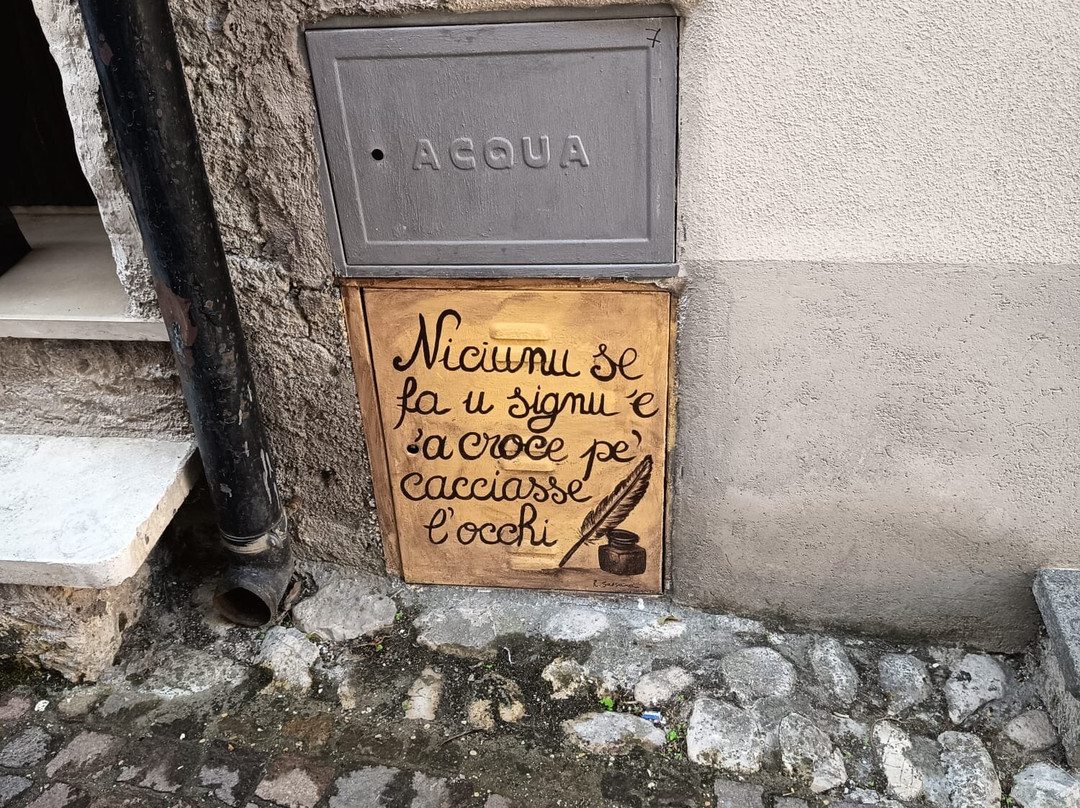 7
ACQUA
Niciunu se
fa u signu 'e
'a croce pe'
cacciasse
l'occhi